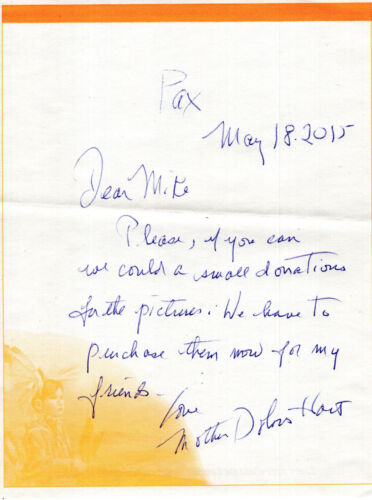 Pax
May 18. 2015
Dear Mike
Please, if you can
we could a small donations
for the pictures. We have to
purchase them now for my
friends -
Love
Mother Dolores Hart